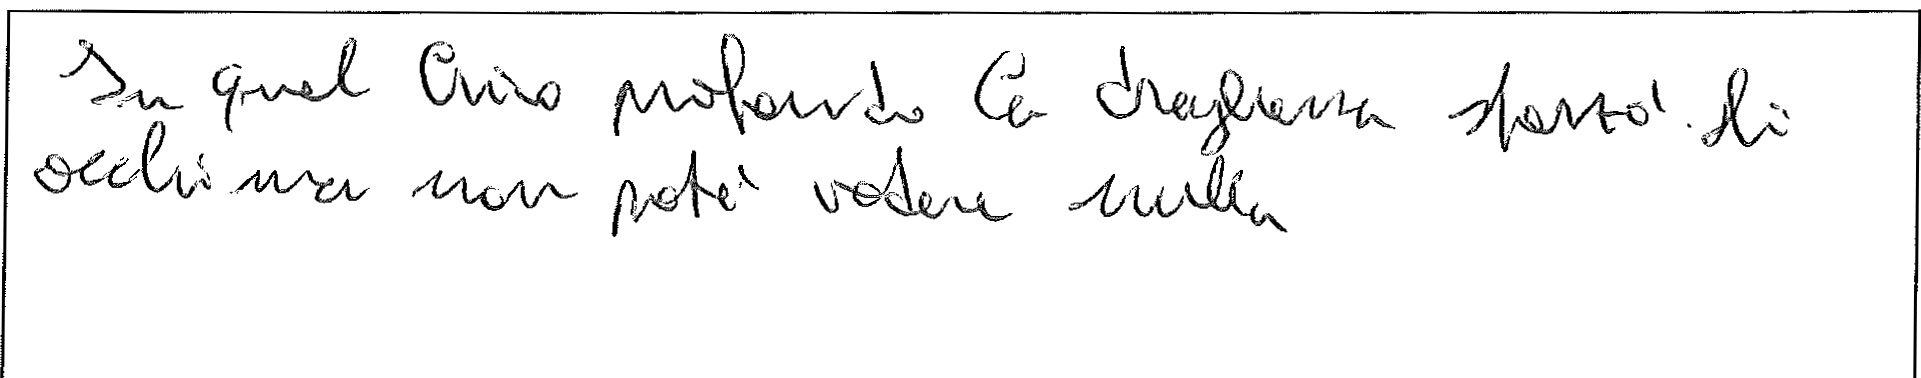 In quel buio profondo la dragharra sforzò gli
occhi ma non poté vedere nulla